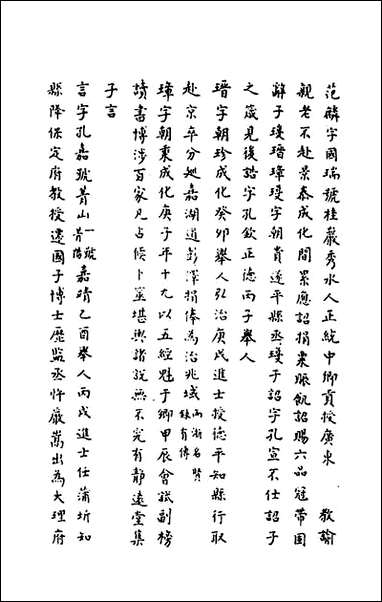 范麟字國瑞號桂巖秀水人正統中鄉貢授廣東　教諭
親老不赴景泰成化間累應詔捐粟賑飢詔賜六品冠帶固
辭子璦瑨璋璦字朝貴遂平縣丞璦子詔字孔宣不仕詔子
之箴見後誥字孔欽正德丙子舉人
瑨字朝珍成化癸卯舉人弘治庚戌進士授德平知縣行取
赴京卒分巡嘉湖道彭澤捐俸為治兆域兩浙名賢錄有傳
璋字朝秉成化庚子年十九以五經魁于鄉甲辰會試副榜
讀書博涉百家凡占候卜筮堪輿諸說無不究有靜遠堂集
子言
言字孔嘉號菁山一號菁陽嘉靖乙酉舉人丙戌進士任蒲圻知
縣降保定府教授遷國子博士歷監丞忤嚴嵩出為大理府